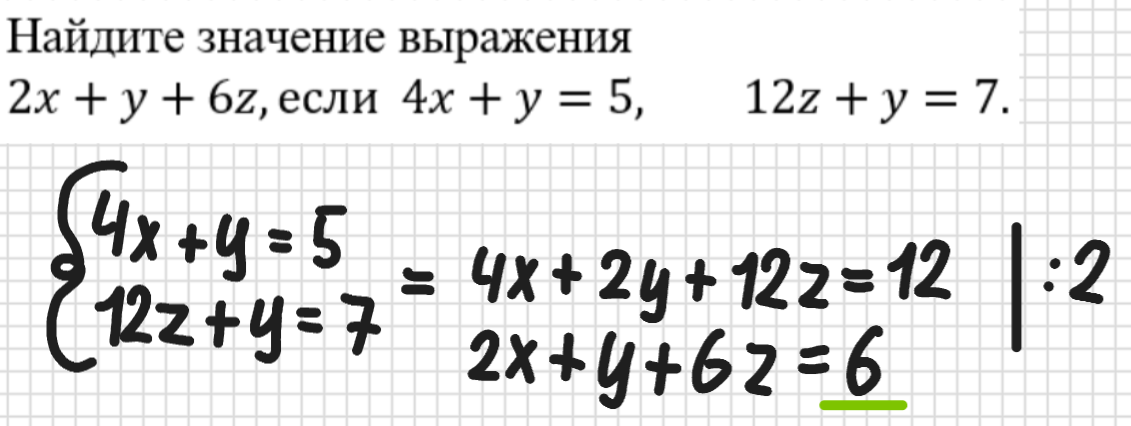 Найдите значение выражения
2x + y + 6z, если 4x + y = 5, 12z + y = 7.
4x + y = 5
12z + y = 7
= 4x + 2y + 12z = 12 | : 2
2x + y + 6z = 6